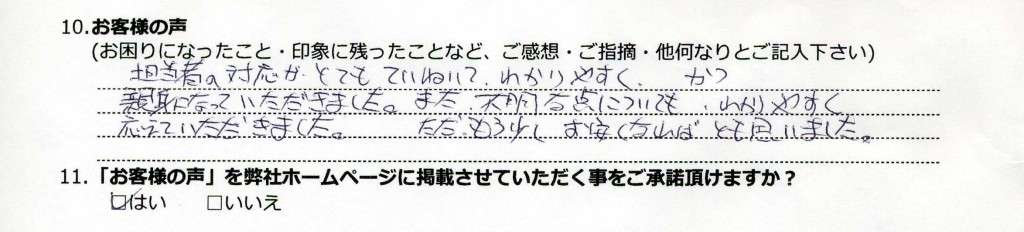 10.お客様の声
(お困りになったこと・印象に残ったことなど、ご感想・ご指摘・他何なりとご記入下さい)
担当者の対応が、とてもていねいで、わかりやすく、かつ
親身になっていただきました。また、不明な点についても、わかりやすく
応えていただきました。ただ、もう少しお安くなればとも思いました。
11.「お客様の声」を弊社ホームページに掲載させていただく事をご承諾頂けますか？
☑はい □いいえ